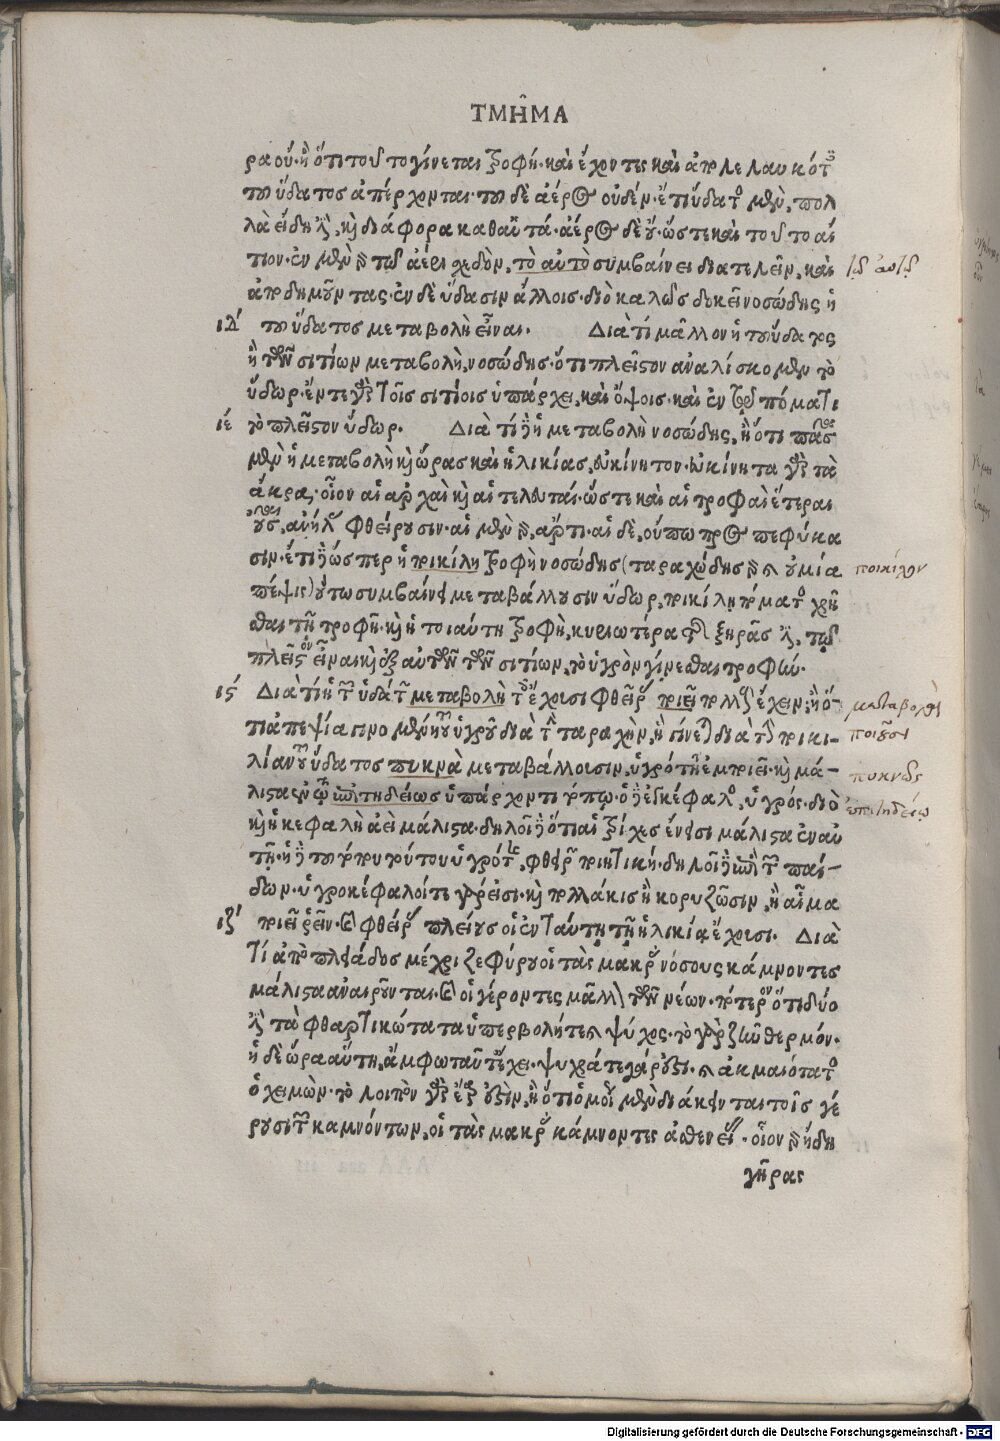 ΤΜΗ͂ΜΑ
ρα οὐ· ἢ ὅτι τοῦτο γίνεται τροφή· καὶ ἔχοντες καὶ ἀπολελαυκότες
τοῦ ὕδατος ἀπέρχονται· τοῦ δὲ ἀέρος οὐδέν· ἔτι ὕδατος μὲν, πολ
λὰ εἴδη ἐστὶ, καὶ διάφορα καθ' αὑτά· ἀέρος δὲ οὔ· ὥστε καὶ τοῦτο αἴ
τιον· ἐν μὲν γὰρ τῷ ἀέρι σχεδὸν, τὸ αὐτὸ συμβαίνει διατελεῖν, καὶ
τῷ αὐτῷ
ἀποδημοῦντας· ἐν δὲ ὕδασιν ἄλλοις· διὸ καλῶς δοκεῖ νοσώδης ἡ
ιδ΄ τοῦ ὕδατος μεταβολὴ εἶναι. Διὰ τί μᾶλλον ἡ τοῦ ὕδατος
ἢ τῶν σιτίων μεταβολὴ, νοσώδης· ὅτι πλεῖστον ἀναλίσκομεν τὸ
ὕδωρ· ἔν τε γὰρ τοῖς σιτίοις ὑπάρχει, καὶ ὄψοις· καὶ ἐν τῷ πόματι
ιε΄ τὸ πλεῖστον ὕδωρ. Διὰ τί δὲ ἡ μεταβολὴ νοσώδης, ἢ ὅτι πᾶσα
μὲν ἡ μεταβολὴ καὶ ὥρας καὶ ἡλικίας, εὐκίνητον· εὐκίνητα γὰρ τὰ
ἄκρα· οἷον αἱ ἀρχαὶ καὶ αἱ τελευταί· ὥστε καὶ αἱ τροφαὶ ἕτεραι
οὖσαι, ἀλλήλας φθείρουσιν· αἱ μὲν γὰρ, ἄρτι· αἱ δὲ, οὔπω προσπεφύκα
σιν· ἔτι δὲ ὥσπερ ἡ ποικίλη τροφὴ νοσώδης (ταραχώδης γὰρ καὶ οὐ μία
ποικίλον
πέψις) οὕτω συμβαίνει μεταβάλλουσιν ὕδωρ, ποικίλῃ πόματος χρῆ
σθαι τῇ τροφῇ· καὶ ἡ τοιαύτη τροφὴ, κυριωτέρα τῆς ξηρᾶς ἐστὶ, τῷ
πλεῖστον εἶναι καὶ ἐξ αὐτῶν τῶν σιτίων, τὸ ὑγρὸν γίνεσθαι τροφήν.
ις΄ Διὰ τί ἡ τῶν ὑδάτων μεταβολὴ τοὺς ἔχουσι φθεῖρας ποιεῖ πολλοὺς ἔχειν; ἢ ὅ-
μεταβολὴς
τι ἀπεψία γινομένη τοῦ ὑγροῦ διὰ τὴν ταραχὴν, ἣ γίνεται διὰ τὴν ποικι-
ποιοῦσι
λίαν τοῦ ὕδατος πυκνὰ μεταβάλλουσιν, ὑγρότητα ἐμποιεῖ· καὶ μά-
πυκνῶς
λιστα ἐν τῷ ἐπιτηδείως ὑπάρχοντι τόπῳ· ὁ δὲ ἐγκέφαλος, ὑγρός· διὸ
ἐπιτηδείῳ
καὶ ἡ κεφαλὴ ἀεὶ μάλιστα· δηλοῖ δὲ ὅτι αἱ τρίχες ἔνεισι μάλιστα ἐν αὐ
τῇ· ἡ δὲ τοῦ τόπου τούτου ὑγρότης, φθειρῶν ποιητική· δηλοῖ δὲ ἐπὶ τῶν παί-
δων· ὑγροκέφαλοί τε γάρ εἰσι· καὶ πολλάκις ἢ κορυζῶσιν, ἢ αἷμα
ιζ΄ ποιεῖ ῥεῖν· καὶ φθεῖρας πλείους οἱ ἐν ταύτῃ τῇ ἡλικίᾳ ἔχουσι. Διὰ
τί ἀπὸ πλειάδος μέχρι ζεφύρου οἱ τὰς μακρὰς νόσους κάμνοντες
μάλιστα ἀναιροῦνται· καὶ οἱ γέροντες μᾶλλον τῶν νέων· πότερον ὅτι δύο
ἐστὶ τὰ φθαρτικώτατα ὑπερβολή τε καὶ ψύχος· τὸ γὰρ ζῆν θερμόν·
ἡ δὲ ὥρα αὕτη, ἄμφω ταῦτα ἔχει· ψυχρά τε γάρ ἐστι· καὶ ἀκμαιότατος
ὁ χειμών· τὸ λοιπὸν γὰρ ἔαρ ἐστὶν, ἢ ὅτι ὁμοίως μὲν διάκεινται τοῖς γέ
ρουσι τῶν καμνόντων, οἱ τὰς μακρὰς κάμνοντες ἀσθενείας· οἷον γὰρ ἤδη
γῆρας
Digitalisierung gefördert durch die Deutsche Forschungsgemeinschaft - DFG